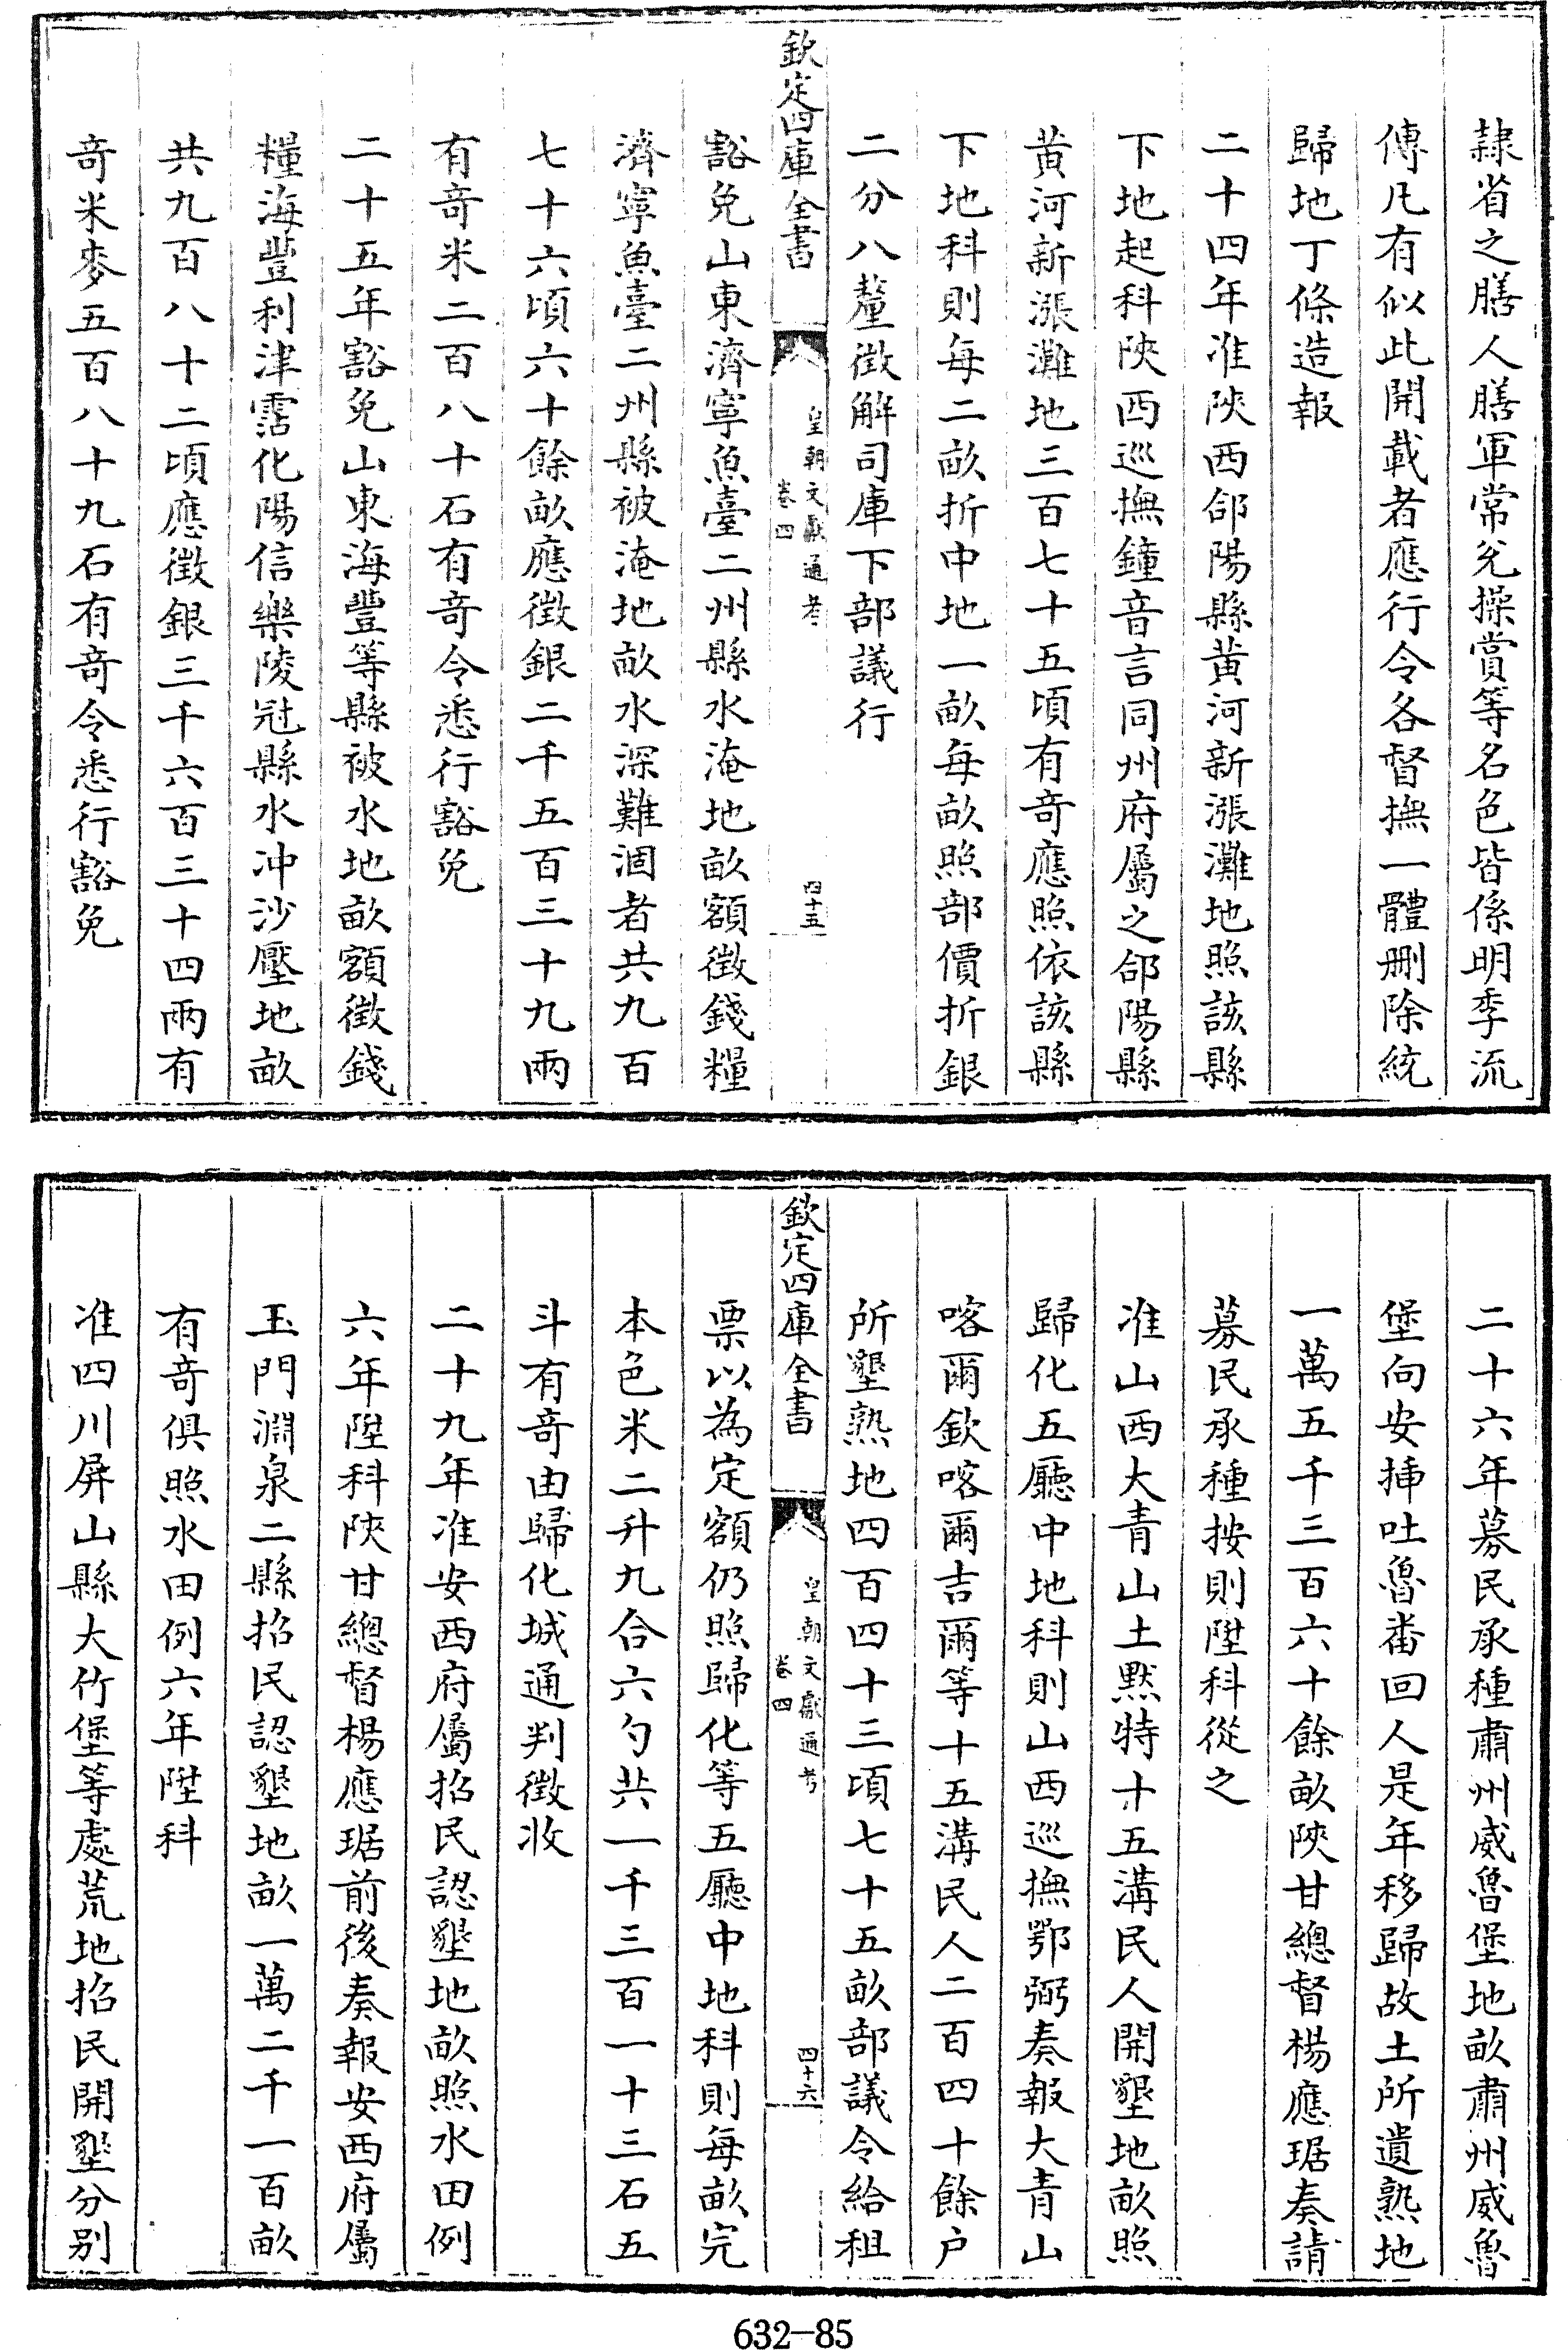 隷省之膳人膳軍常兊操賞等名色皆係明季流
傳凡有似此開載者應行令各督撫一體刪除統
歸地丁條造報
二十四年准陜西郃陽縣黄河新漲灘地照該縣
下地起科陜西巡撫鐘音言同州府屬之郃陽縣
黄河新漲灘地三百七十五頃有奇應照依該縣
下地科則每二畝折中地一畝每畝照部價折銀
二分八釐徵解司庫下部議行
欽定四庫全書
皇朝文獻通考
卷四
四十五
豁免山東濟寧魚臺二州縣水淹地畝額徵錢糧
濟寧魚臺二州縣被淹地畝水深難涸者共九百
七十六頃六十餘畝應徵銀二千五百三十九兩
有奇米二百八十石有奇令悉行豁免
二十五年豁免山東海豐等縣被水地畝額徵錢
糧海豐利津霑化陽信樂陵冠縣水冲沙壓地畝
共九百八十二頃應徵銀三千六百三十四兩有
奇米麥五百八十九石有奇令悉行豁免
二十六年募民承種肅州威魯堡地畝肅州威魯
堡向安揷吐魯番回人是年移歸故土所遺熟地
一萬五千三百六十餘畝陜甘總督楊應琚奏請
募民承種按則陞科從之
准山西大青山土黙特十五溝民人開墾地畝照
歸化五廳中地科則山西巡撫鄂弼奏報大青山
喀爾欽喀爾吉爾等十五溝民人二百四十餘户
所墾熟地四百四十三頃七十五畝部議令給租
欽定四庫全書
皇朝文獻通考
卷四
四十六
票以為定額仍照歸化等五廳中地科則每畝完
本色米二升九合六勺共一千三百一十三石五
斗有奇由歸化城通判徵收
二十九年准安西府屬招民認墾地畝照水田例
六年陞科陜甘總督楊應琚前後奏報安西府屬
玉門淵泉二縣招民認墾地畝一萬二千一百畝
有奇俱照水田例六年陞科
准四川屏山縣大竹堡等處荒地招民開墾分别
632-85